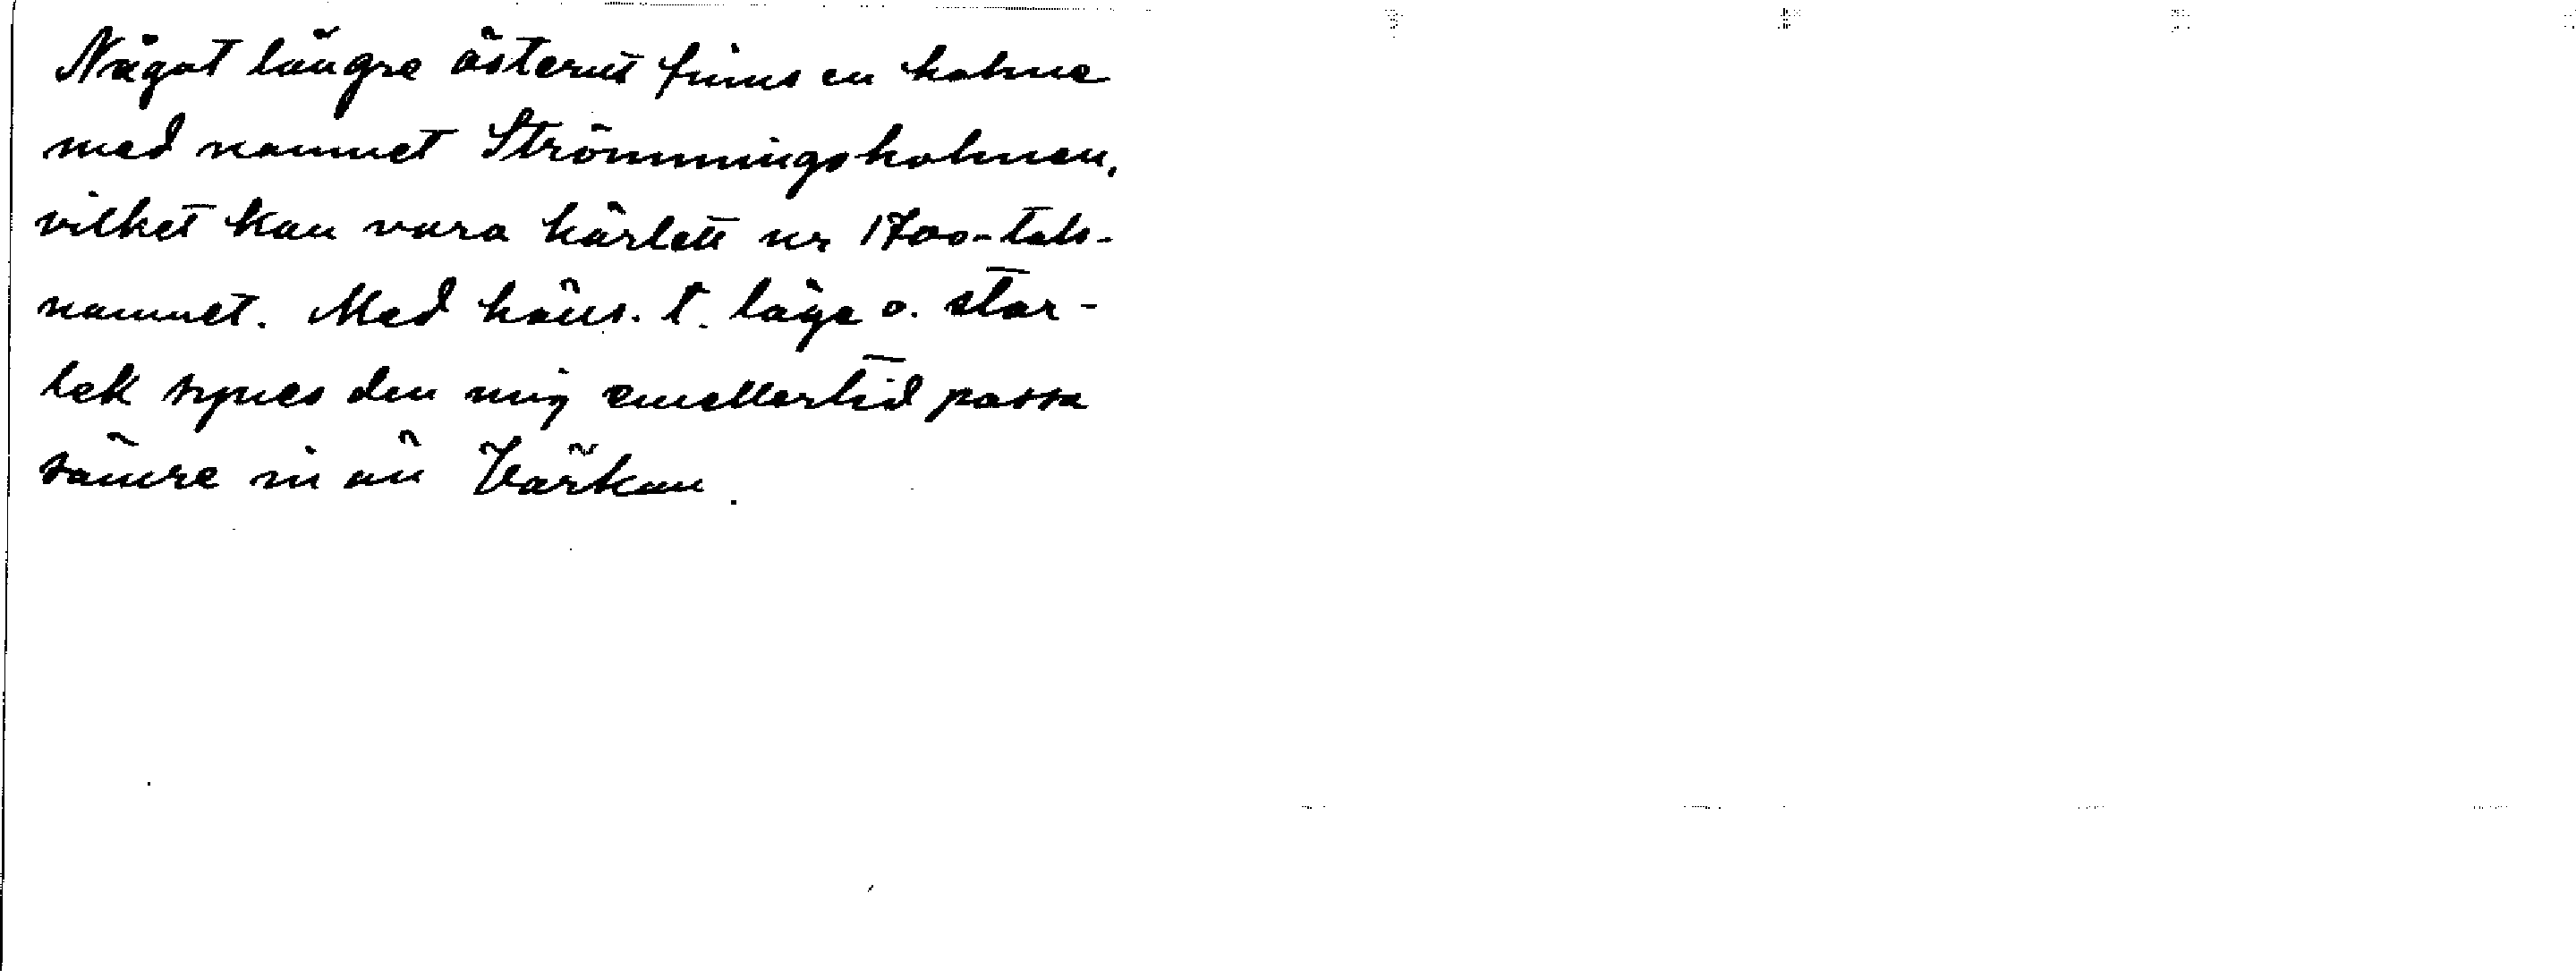 Något längre österut finns en holme
med namnet Strömmingsholmen,
vilket kan vara härlett ur 1700-tals-
namnet. Med häns. t. läge o. stor-
lek synes den mig emellertid passa
sämre in än Värkan.